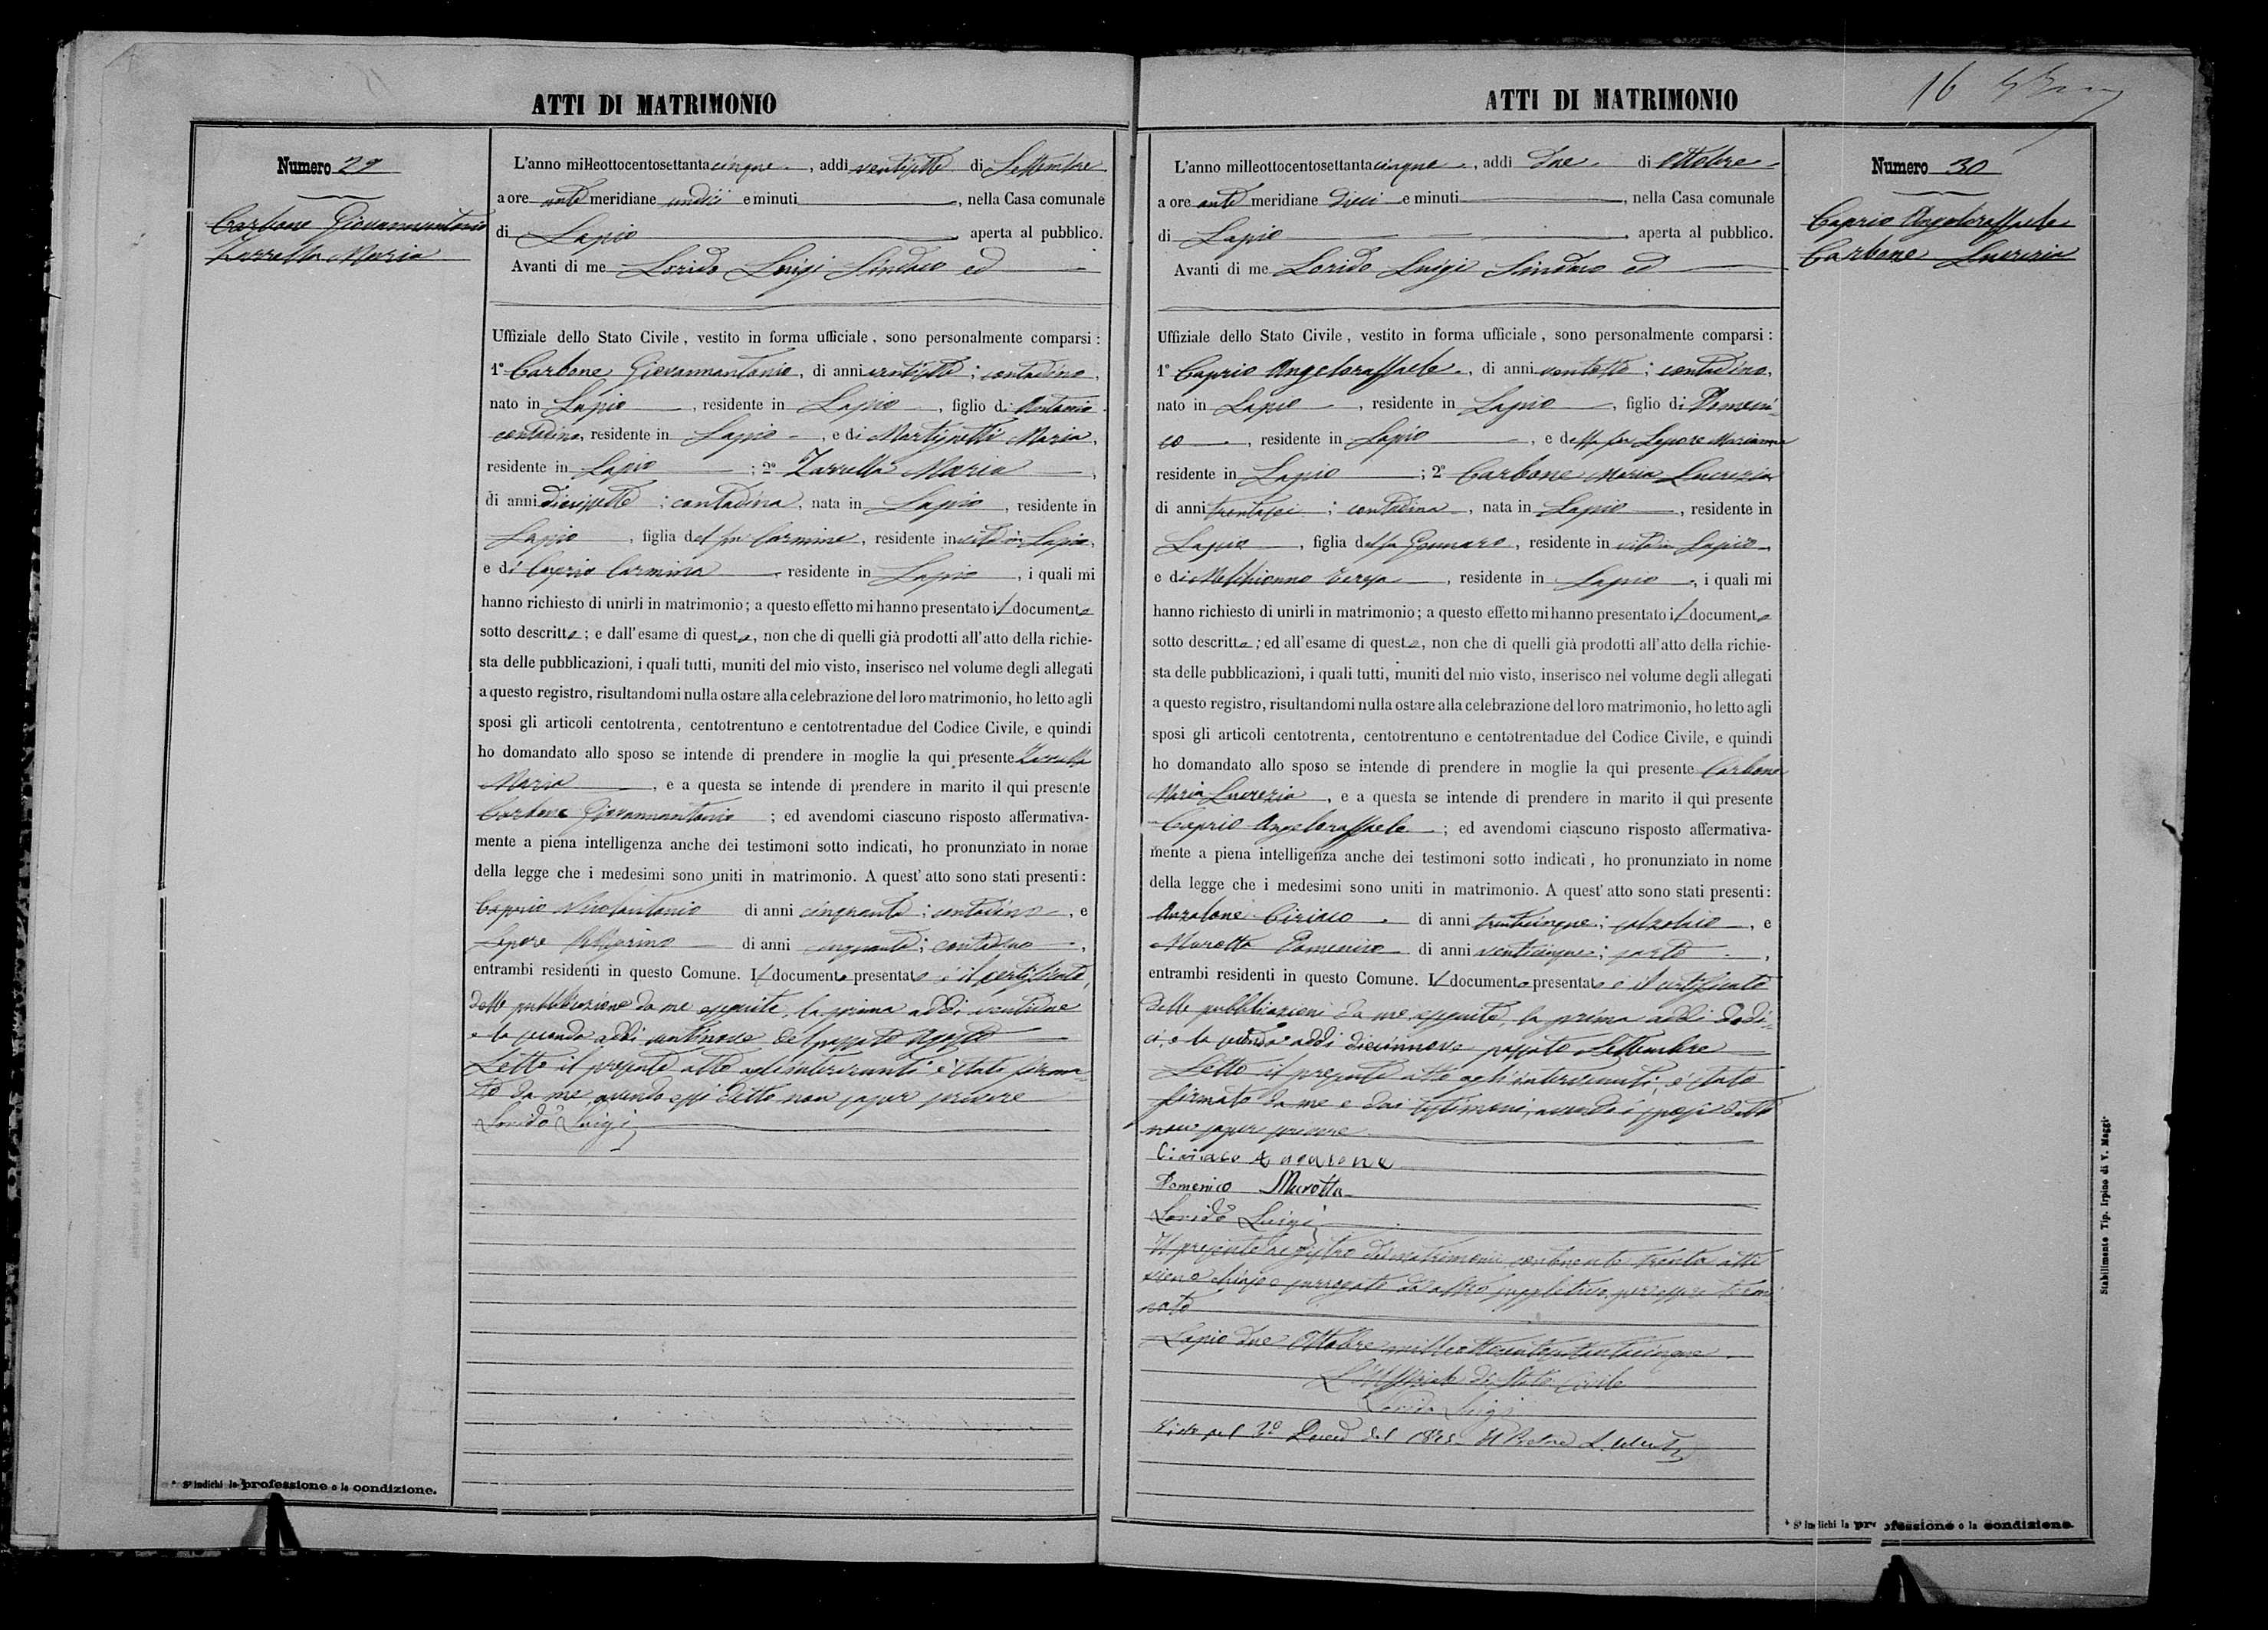 ATTI DI MATRIMONIO
Numero 29
Carbone Giovannantonio
Zarrella Maria
L'anno milleottocentosettantacinque, addi ventisette di Settembre
a ore ante meridiane undici e minuti, nella Casa comunale
di Lapio aperta al pubblico.
Avanti di me Lorido Luigi Sindaco ed
Uffiziale dello Stato Civile, vestito in forma ufficiale, sono personalmente comparsi:
1° Carbone Giovannantonio, di anni ventisette; contadino,
nato in Lapio, residente in Lapio, figlio di Antonio
contadino, residente in Lapio, e di Martignetti Maria,
residente in Lapio; 2° Zarrella Maria,
di anni diecissette; contadina, nata in Lapio, residente in
Lapio, figlia del fu Carmine, residente in vita in Lapio,
e di Caprio Carmina, residente in Lapio, i quali mi
hanno richiesto di unirli in matrimonio; a questo effetto mi hanno presentato il documento
sotto descritto; e dall'esame di questo, non che di quelli già prodotti all'atto della richie-
sta delle pubblicazioni, i quali tutti, muniti del mio visto, inserisco nel volume degli allegati
a questo registro, risultandomi nulla ostare alla celebrazione del loro matrimonio, ho letto agli
sposi gli articoli centotrenta, centotrentuno e centotrentadue del Codice Civile, e quindi
ho domandato allo sposo se intende di prendere in moglie la qui presente Zarrella
Maria, e a questa se intende di prendere in marito il qui presente
Carbone Giovannantonio; ed avendomi ciascuno risposto affermativa-
mente a piena intelligenza anche dei testimoni sotto indicati, ho pronunziato in nome
della legge che i medesimi sono uniti in matrimonio. A quest'atto sono stati presenti:
Caprio Nicolantonio di anni cinquanta; contadino, e
Lepore Pellegrino di anni cinquanta; contadino,
entrambi residenti in questo Comune. Il documento presentato è il certificato
delle pubblicazione da me eseguite, la prima addi ventidue
e la seconda addi ventinove del passato Agosto
Letto il presente atto agl'intervenuti è stato firma-
to da me avendo essi detto non saper scrivere
Lorido Luigi
* Si indichi la professione o la condizione.
ATTI DI MATRIMONIO
16
Numero 30
Caprio Angeloraffaele
Carbone Lucrezia
L'anno milleottocentosettantacinque, addi due di Ottobre
a ore ante meridiane dieci e minuti, nella Casa comunale
di Lapio aperta al pubblico.
Avanti di me Lorido Luigi Sindaco ed
Uffiziale dello Stato Civile, vestito in forma ufficiale, sono personalmente comparsi:
1° Caprio Angeloraffaele, di anni ventotto; contadino,
nato in Lapio, residente in Lapio, figlio di Domeni-
co, residente in Lapio, e della fu Lepore Marianna
residente in Lapio; 2° Carbone Maria Lucrezia
di anni trentasei; contadina, nata in Lapio, residente in
Lapio, figlia del fu Gennaro, residente in vita in Lapio,
e di Melchionno Teresa, residente in Lapio, i quali mi
hanno richiesto di unirli in matrimonio; a questo effetto mi hanno presentato il documento
sotto descritto; ed all'esame di questo, non che di quelli già prodotti all'atto della richie-
sta delle pubblicazioni, i quali tutti, muniti del mio visto, inserisco nel volume degli allegati
a questo registro, risultandomi nulla ostare alla celebrazione del loro matrimonio, ho letto agli
sposi gli articoli centotrenta, centotrentuno e centotrentadue del Codice Civile, e quindi
ho domandato allo sposo se intende di prendere in moglie la qui presente Carbone
Maria Lucrezia, e a questa se intende di prendere in marito il qui presente
Caprio Angeloraffaele; ed avendomi ciascuno risposto affermativa-
mente a piena intelligenza anche dei testimoni sotto indicati, ho pronunziato in nome
della legge che i medesimi sono uniti in matrimonio. A quest'atto sono stati presenti:
Anzalone Ciriaco di anni trentacinque; calzolaio, e
Marotta Domenico di anni venticinque; sarto,
entrambi residenti in questo Comune. Il documento presentato è il certificato
delle pubblicazioni da me eseguite, la prima addi dodi-
ci, e la seconda addi diciannove passato Settembre
Letto il presente atto agl'intervenuti, è stato
firmato da me e dai testimoni, avendo i sposi detto
non saper scrivere
Ciriaco Anzalone
Domenico Marotta
Lorido Luigi
Il presente registro di matrimonio contenente trenta atti
viene chiuso e surrogato da altro suppletivo per essere termi-
nato
Lapio due Ottobre milleottocentosettantacinque
L'Uffiziale di Stato Civile
Lorido Luigi
Visto pel del 1875 Il Pretore
* Si indichi la professione o la condizione.
Stabilimento Tip. Irpino di V. Maggi